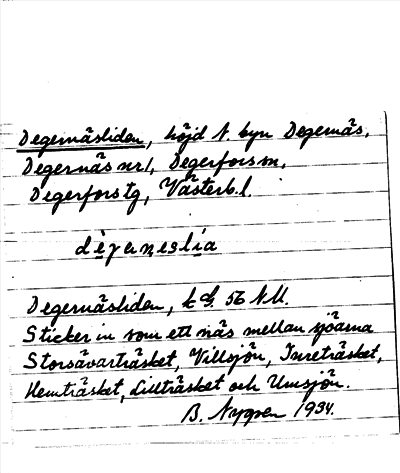 Degernäsliden, höjd N. byn Degernäs,
Degernäs nr 1, Degerfors sn,
Degerfors tg, Västerb. l.
Degernäsliden, 56 NU.
Sticker in som ett näs mellan sjöarna
Storsävarträsket, Villsjön, Inreträsket,
Hemträsket, Lillträsket och Umsjön.
B. Nygren 1934.